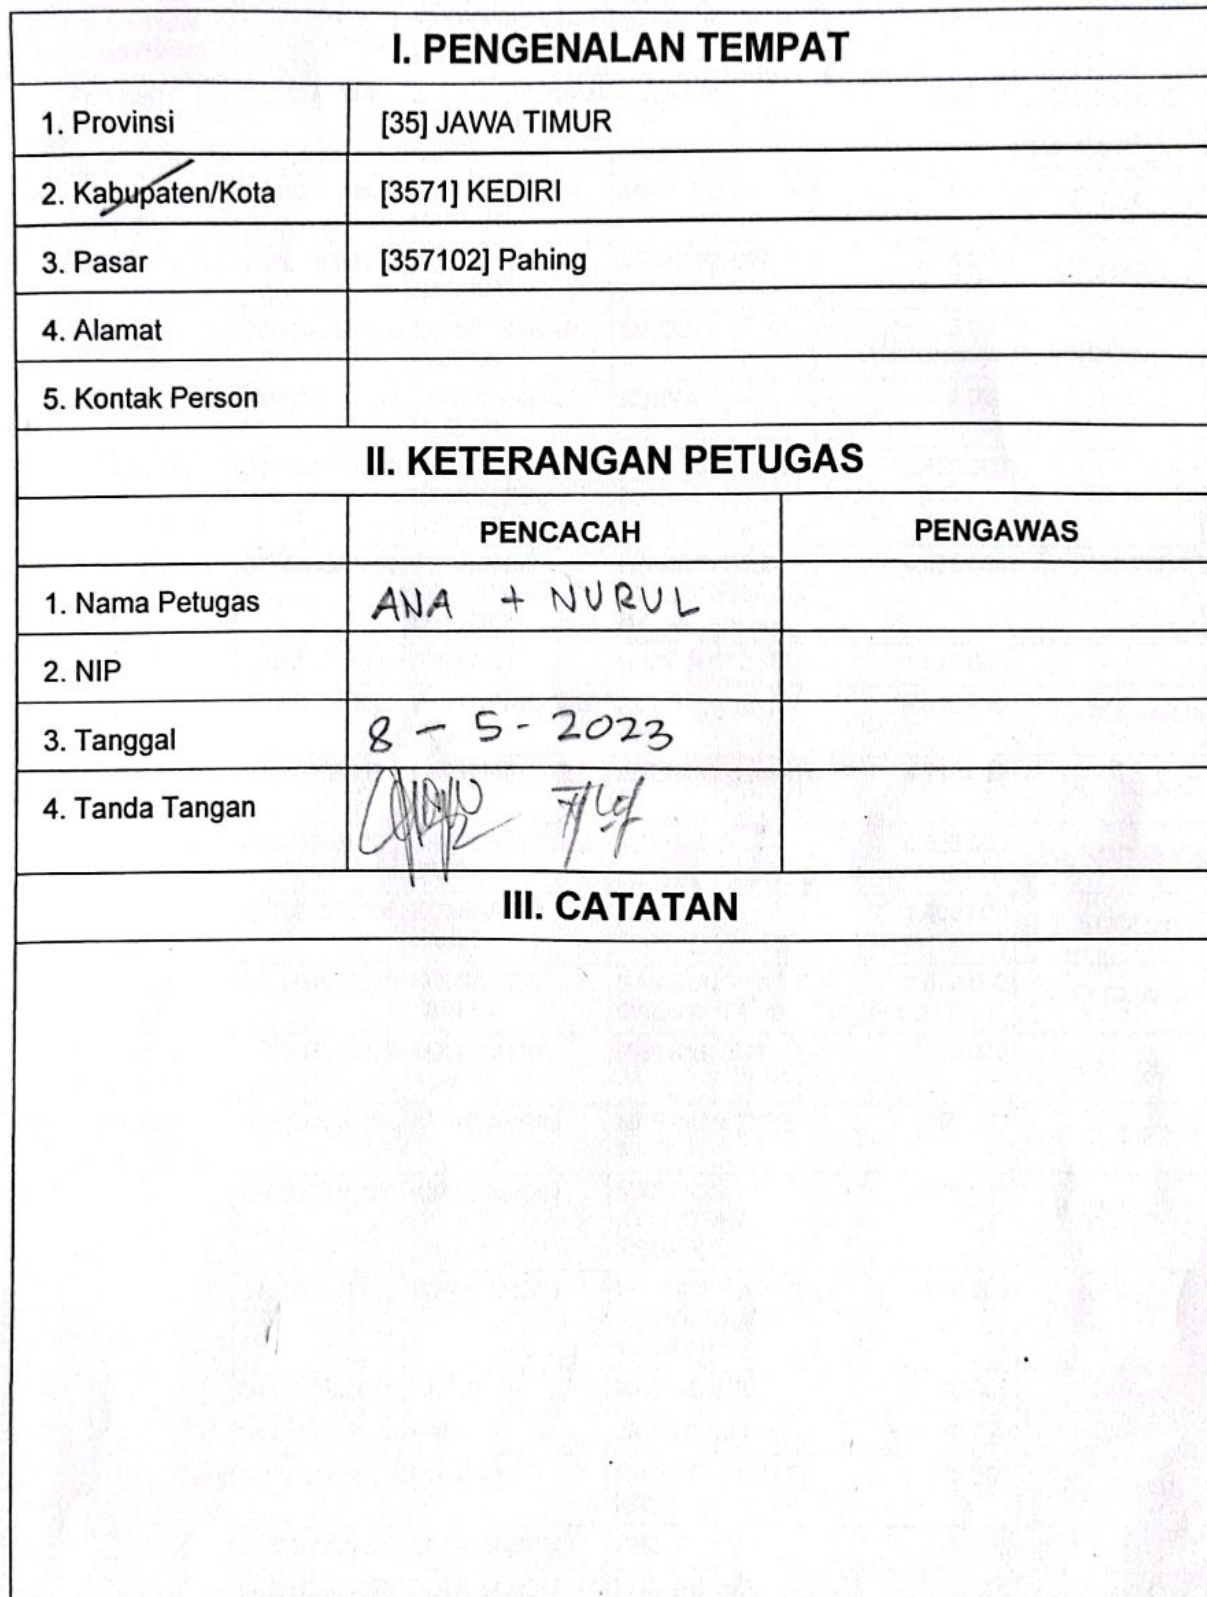 I. PENGENALAN TEMPAT
1. Provinsi [35] JAWA TIMUR
2. Kabupaten/Kota [3571] KEDIRI
3. Pasar [357102] Pahing
4. Alamat
5. Kontak Person
II. KETERANGAN PETUGAS
PENCACAH PENGAWAS
1. Nama Petugas ANA + NURUL
2. NIP
3. Tanggal 8 - 5 - 2023
4. Tanda Tangan
III. CATATAN